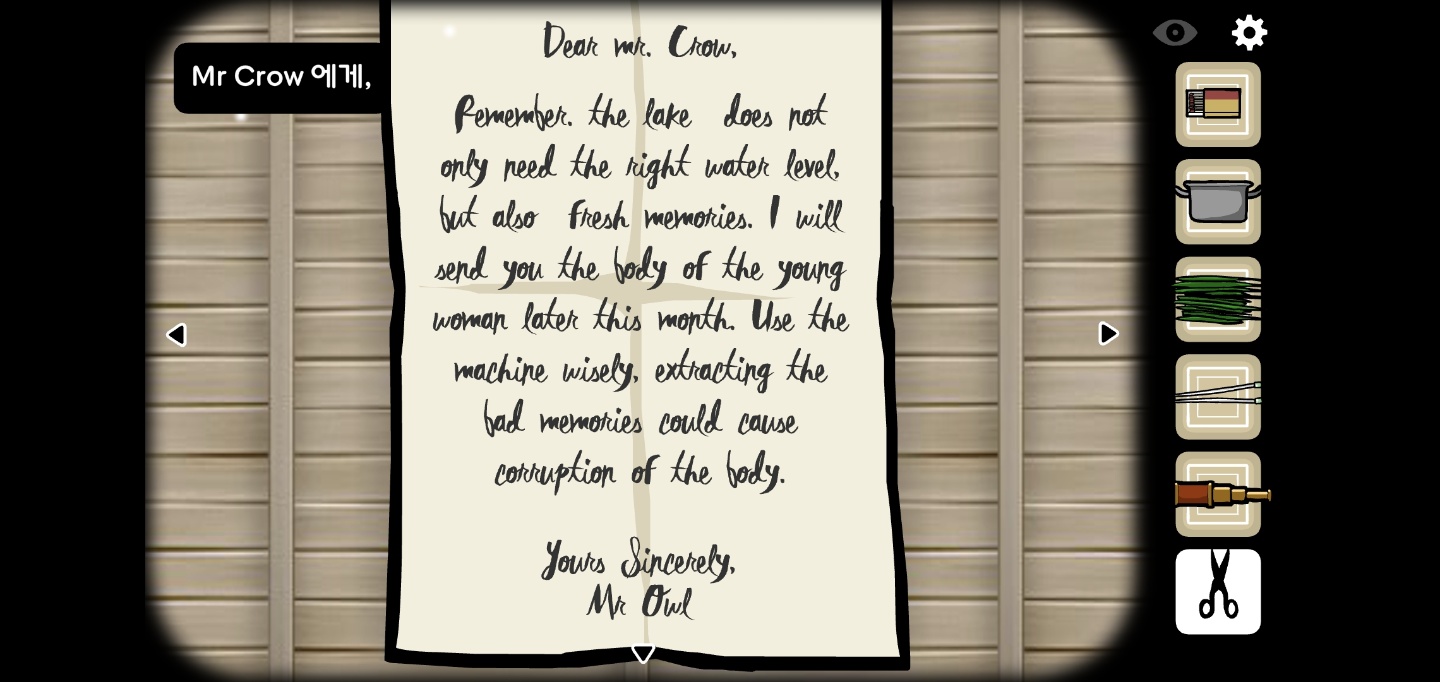 Mr Crow 에게,
Dear mr. Crow,
Remember. the lake does not
only need the right water level,
but also fresh memories. I will
send you the body of the young
woman later this month. Use the
machine wisely, extracting the
bad memories could cause
corruption of the body.
Yours Sincerely,
Mr Owl